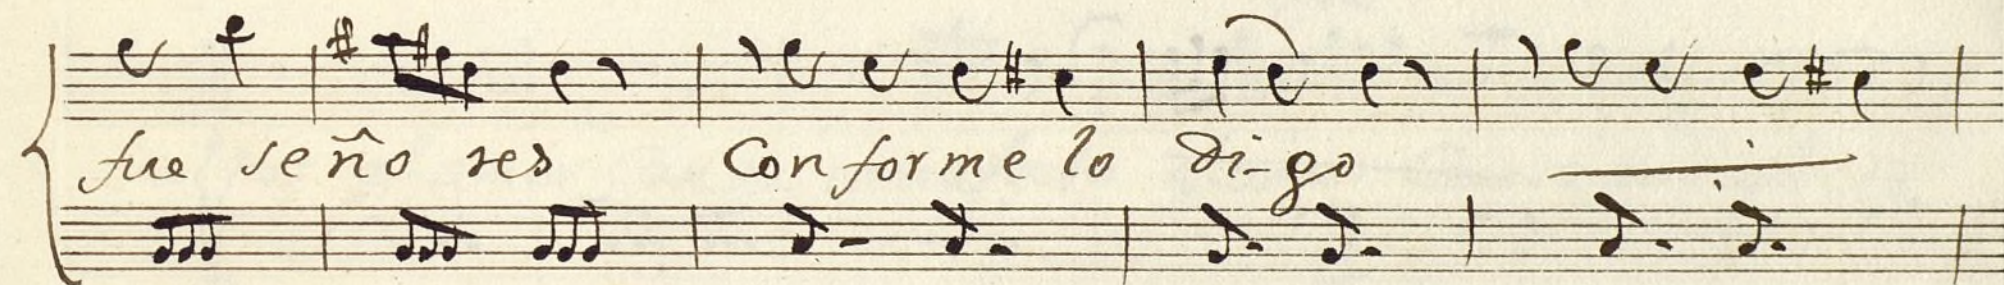 fue seño res Con for me lo di-go